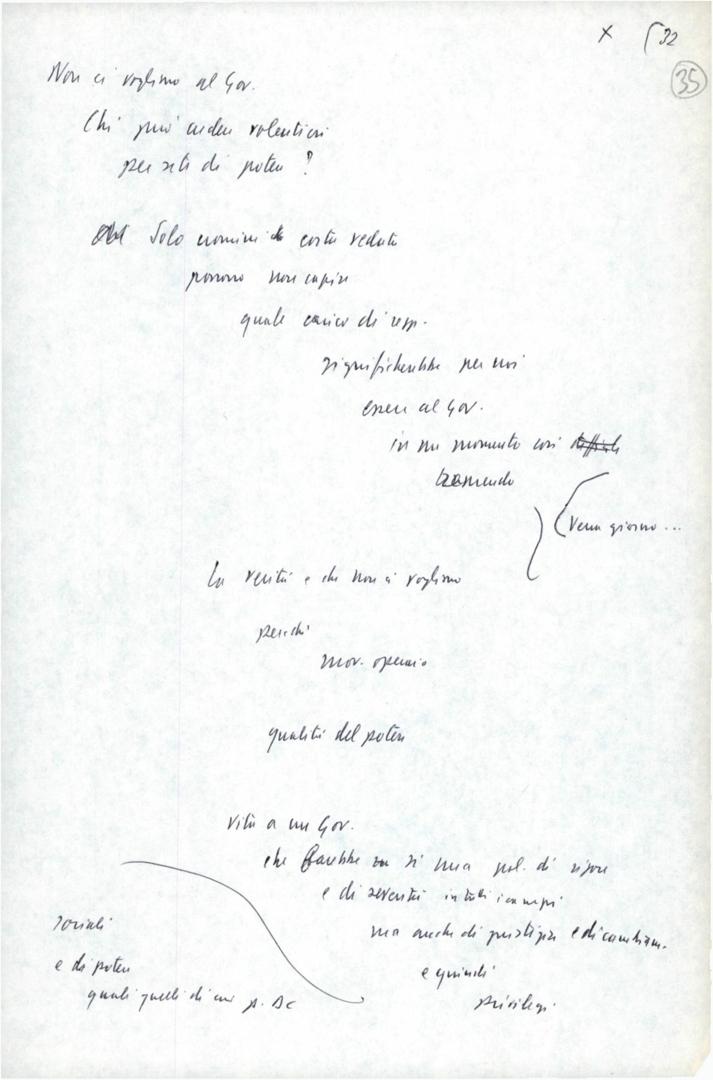 x ⌠32
35
Non ci vogliono al Gov.
Chi può andare volentieri
per sete di potere ?
Solo uomini di corta veduta
possono non capire
quale carico di resp.
significherebbe per noi
essere al Gov.
in un momento così difficile
tremendo
(Verrà giorno...
La verità è che non ci vogliono
perché
mov. operaio
qualità del potere
vita a un Gov.
che farebbe sì una pol. di rigore
e di severità in tutti i campi
ma anche di giustizia e di cambiam.
e quindi
privilegi
sociali
e di potere
quali quelli di cui p. DC